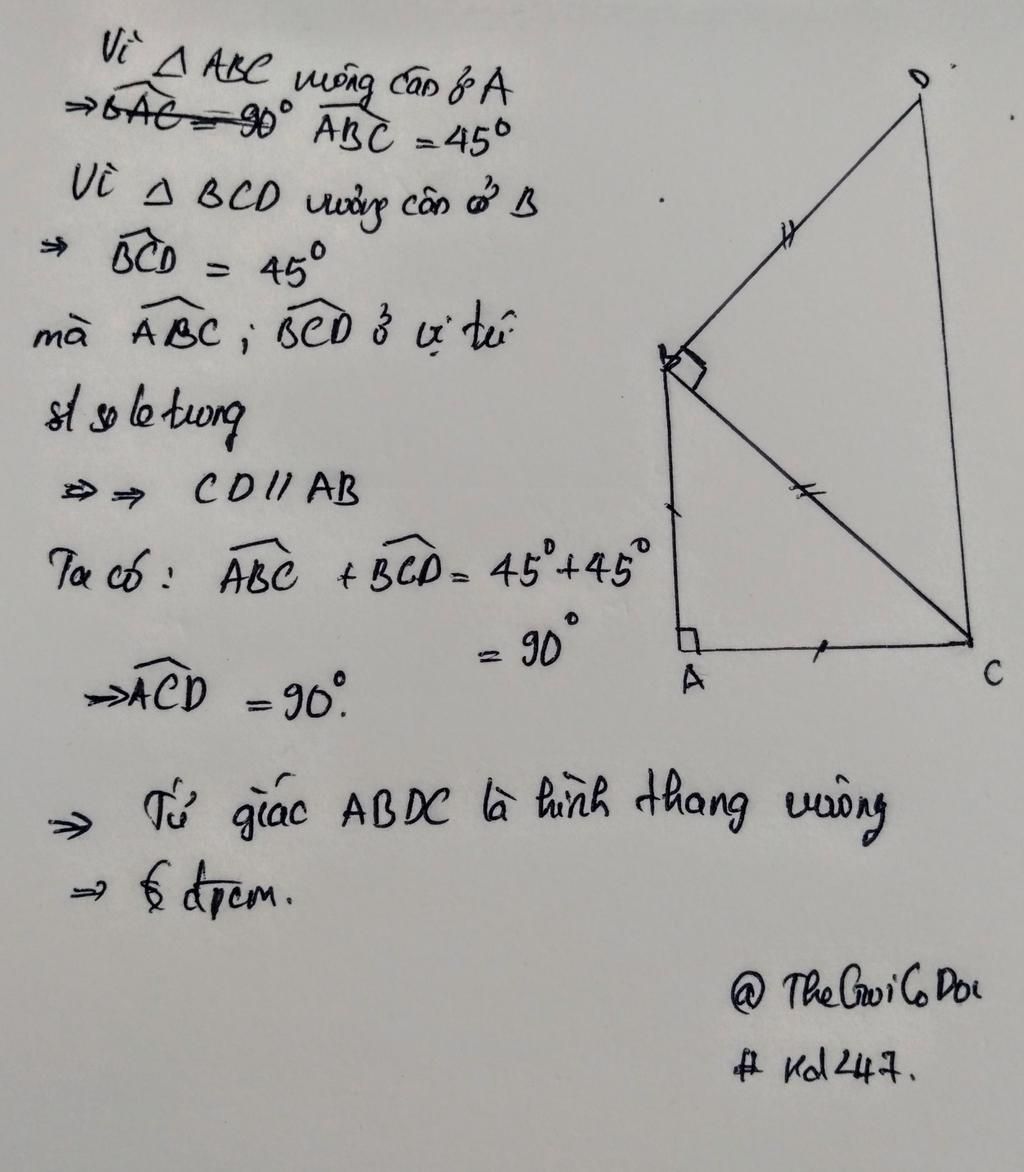 Vì △ ABC vuông cân ở A
⇒ BAC = 90° ABC = 45°
Vì △ BCD vuông cân ở B
⇒ BCD = 45°
mà ABC ; BCD ở vị trí
sl so le trong
⇒ ⇒ CD // AB
Ta có : ABC + BCD = 45° + 45°
= 90°
⇒ ACD = 90°.
⇒ Tứ giác ABDC là hình thang vuông
⇒ đpcm.
D
B
A
C
# Kd247.